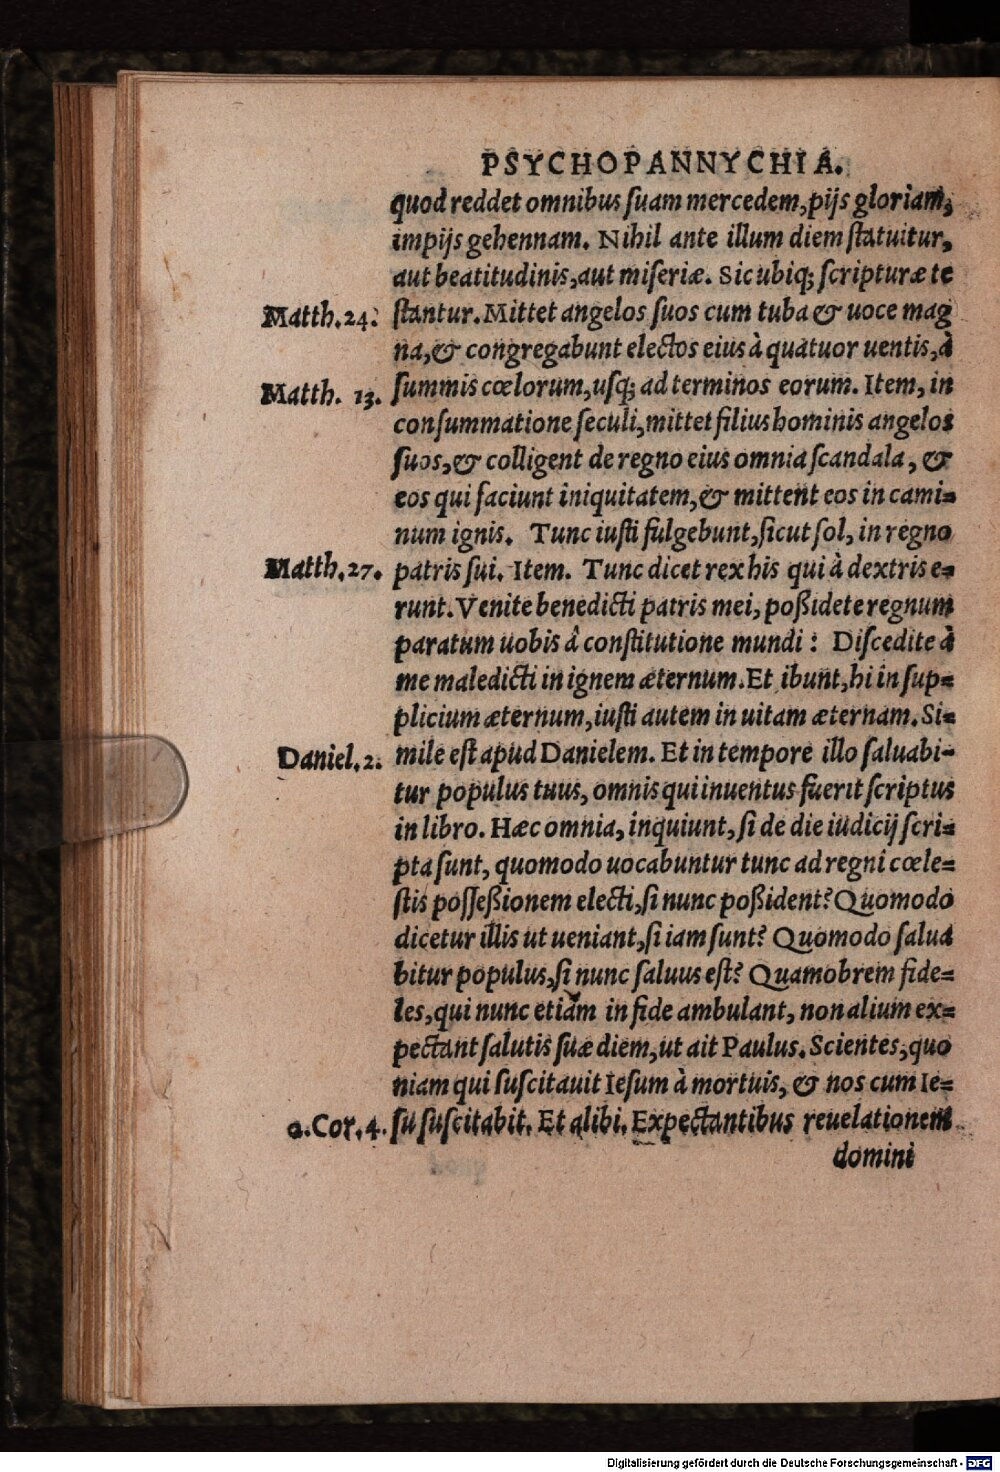 PSYCHOPANNYCHIA.
quod reddet omnibus ſuam mercedem, pijs gloriam,
impijs gehennam. Nihil ante illum diem ſtatuitur,
aut beatitudinis, aut miſeriæ. Sic ubiq; ſcripturæ te
Matth. 24. ſtantur. Mittet angelos ſuos cum tuba & uoce mag
na, & congregabunt electos eius à quatuor uentis, à
Matth. 13. ſummis cœlorum, uſq; ad terminos eorum. Item, in
conſummatione ſeculi, mittet filius hominis angelos
ſuos, & colligent de regno eius omnia ſcandala, &
eos qui faciunt iniquitatem, & mittent eos in cami=
num ignis. Tunc iuſti fulgebunt, ſicut ſol, in regno
Matth. 27. patris ſui. Item. Tunc dicet rex his qui à dextris e=
runt. Venite benedicti patris mei, poßidete regnum
paratum uobis â conſtitutione mundi : Diſcedite à
me maledicti in ignem æternum. Et ibunt, hi in ſup=
plicium æternum, iuſti autem in uitam æternam. Si=
Daniel. 2. mile eſt apud Danielem. Et in tempore illo ſaluabi-
tur populus tuus, omnis qui inuentus fuerit ſcriptus
in libro. Hæc omnia, inquiunt, ſi de die iudicij ſcri=
pta ſunt, quomodo uocabuntur tunc ad regni cœle=
ſtis poſſeßionem electi, ſi nunc poßident? Quomodo
dicetur illis ut ueniant, ſi iam ſunt? Quomodo ſalua
bitur populus, ſi nunc ſaluus eſt? Quamobrem fide=
les, qui nunc etiam in fide ambulant, non alium ex=
pectant ſalutis ſuæ diem, ut ait Paulus. Scientes, quo
niam qui ſuſcitauit Ieſum à mortuis, & nos cum Ie=
2. Cor. 4. ſu ſuſcitabit. Et alibi. Expectantibus reuelationem
domini
Digitalisierung gefördert durch die Deutsche Forschungsgemeinschaft - DFG